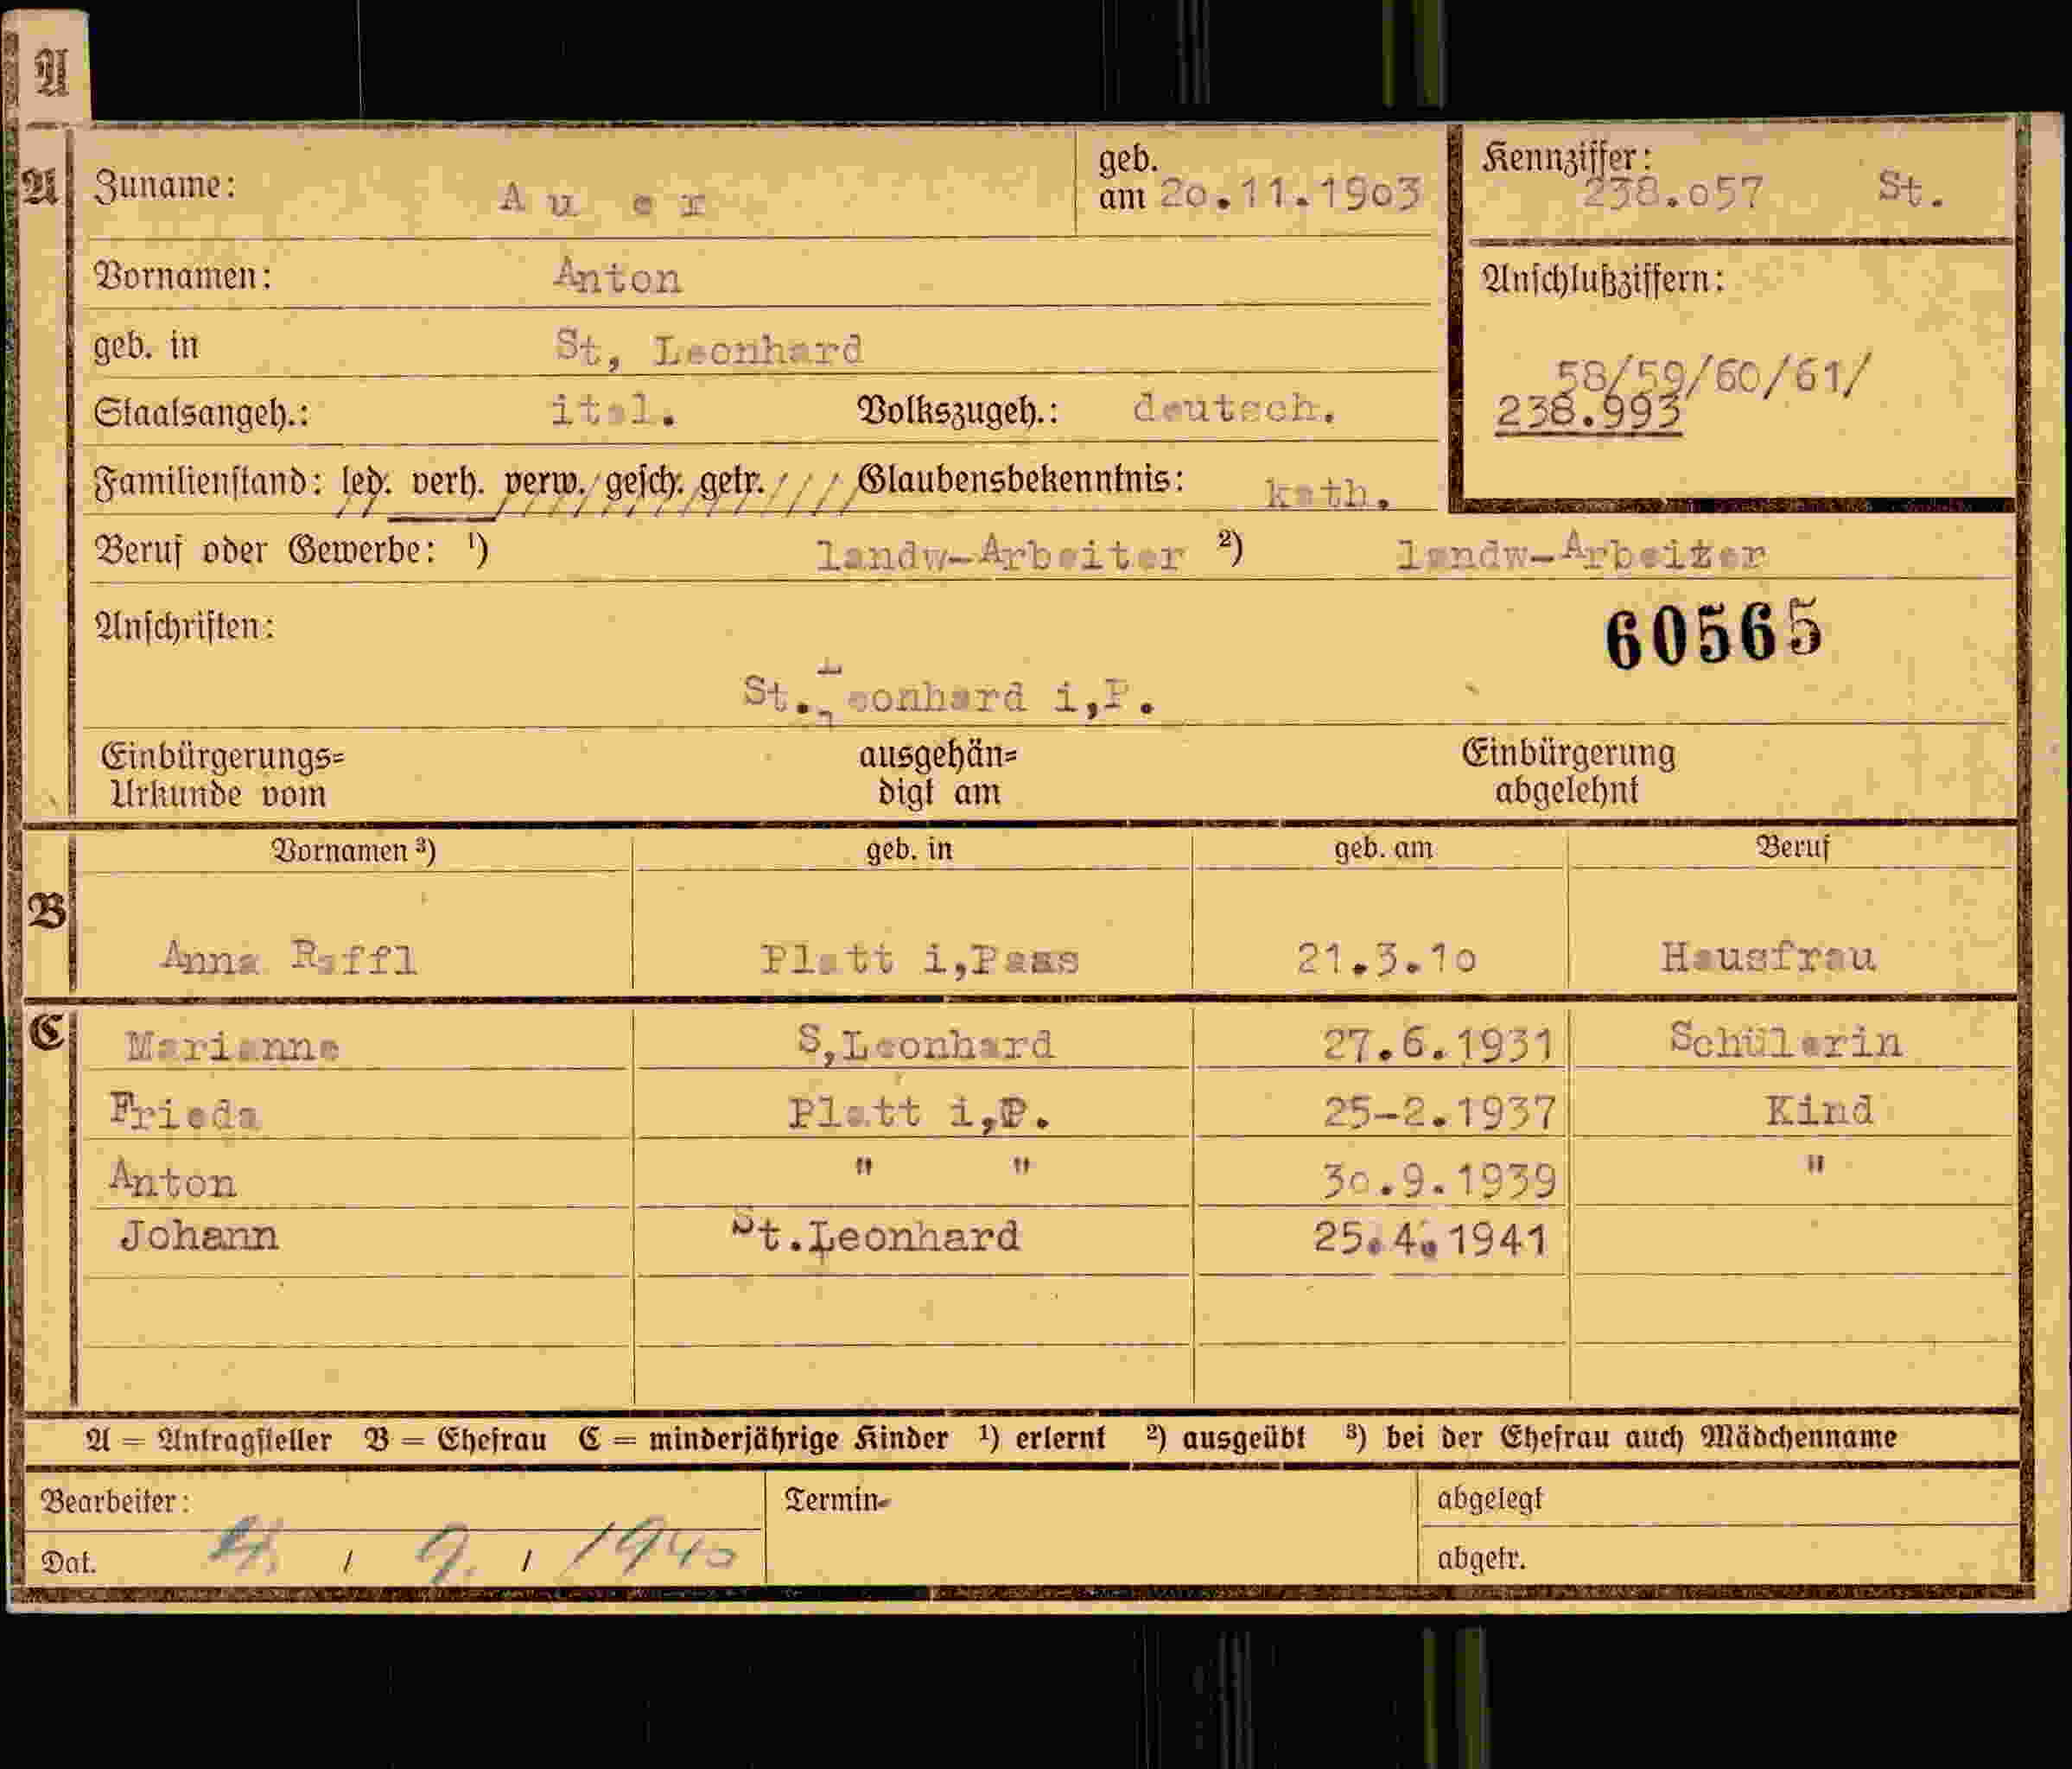 A
A Zuname: Auer geb. am 20.11.1903 Kennziffer: 238.057 St.
Vornamen: Anton Anschlußziffern:
geb. in St, Leonhard 58/59/60/61/
Staatsangeh.: ital. Volkszugeh.: deutsch. 238.993
Familienstand: led. verh. verw. gesch. getr. Glaubensbekenntnis: kath.
Beruf oder Gewerbe: ¹) landw-Arbeiter ²) landw-Arbeiter
Anschriften: 60565
St. Leonhard i,P.
Einbürgerungs= ausgehän= Einbürgerung
Urkunde vom digt am abgelehnt
Vornamen ³) geb. in geb. am Beruf
B Anna Raffl Platt i,Pass 21.3.10 Hausfrau
C Marianne S,Leonhard 27.6.1931 Schülerin
Frieda Platt i,P. 25-2.1937 Kind
Anton " " 30.9.1939 "
Johann St.Leonhard 25.4.1941
A = Antragsteller B = Ehefrau C = minderjährige Kinder ¹) erlernt ²) ausgeübt ³) bei der Ehefrau auch Mädchenname
Bearbeiter: Termin abgelegt
Dat. / 9. / 1940 abgetr.